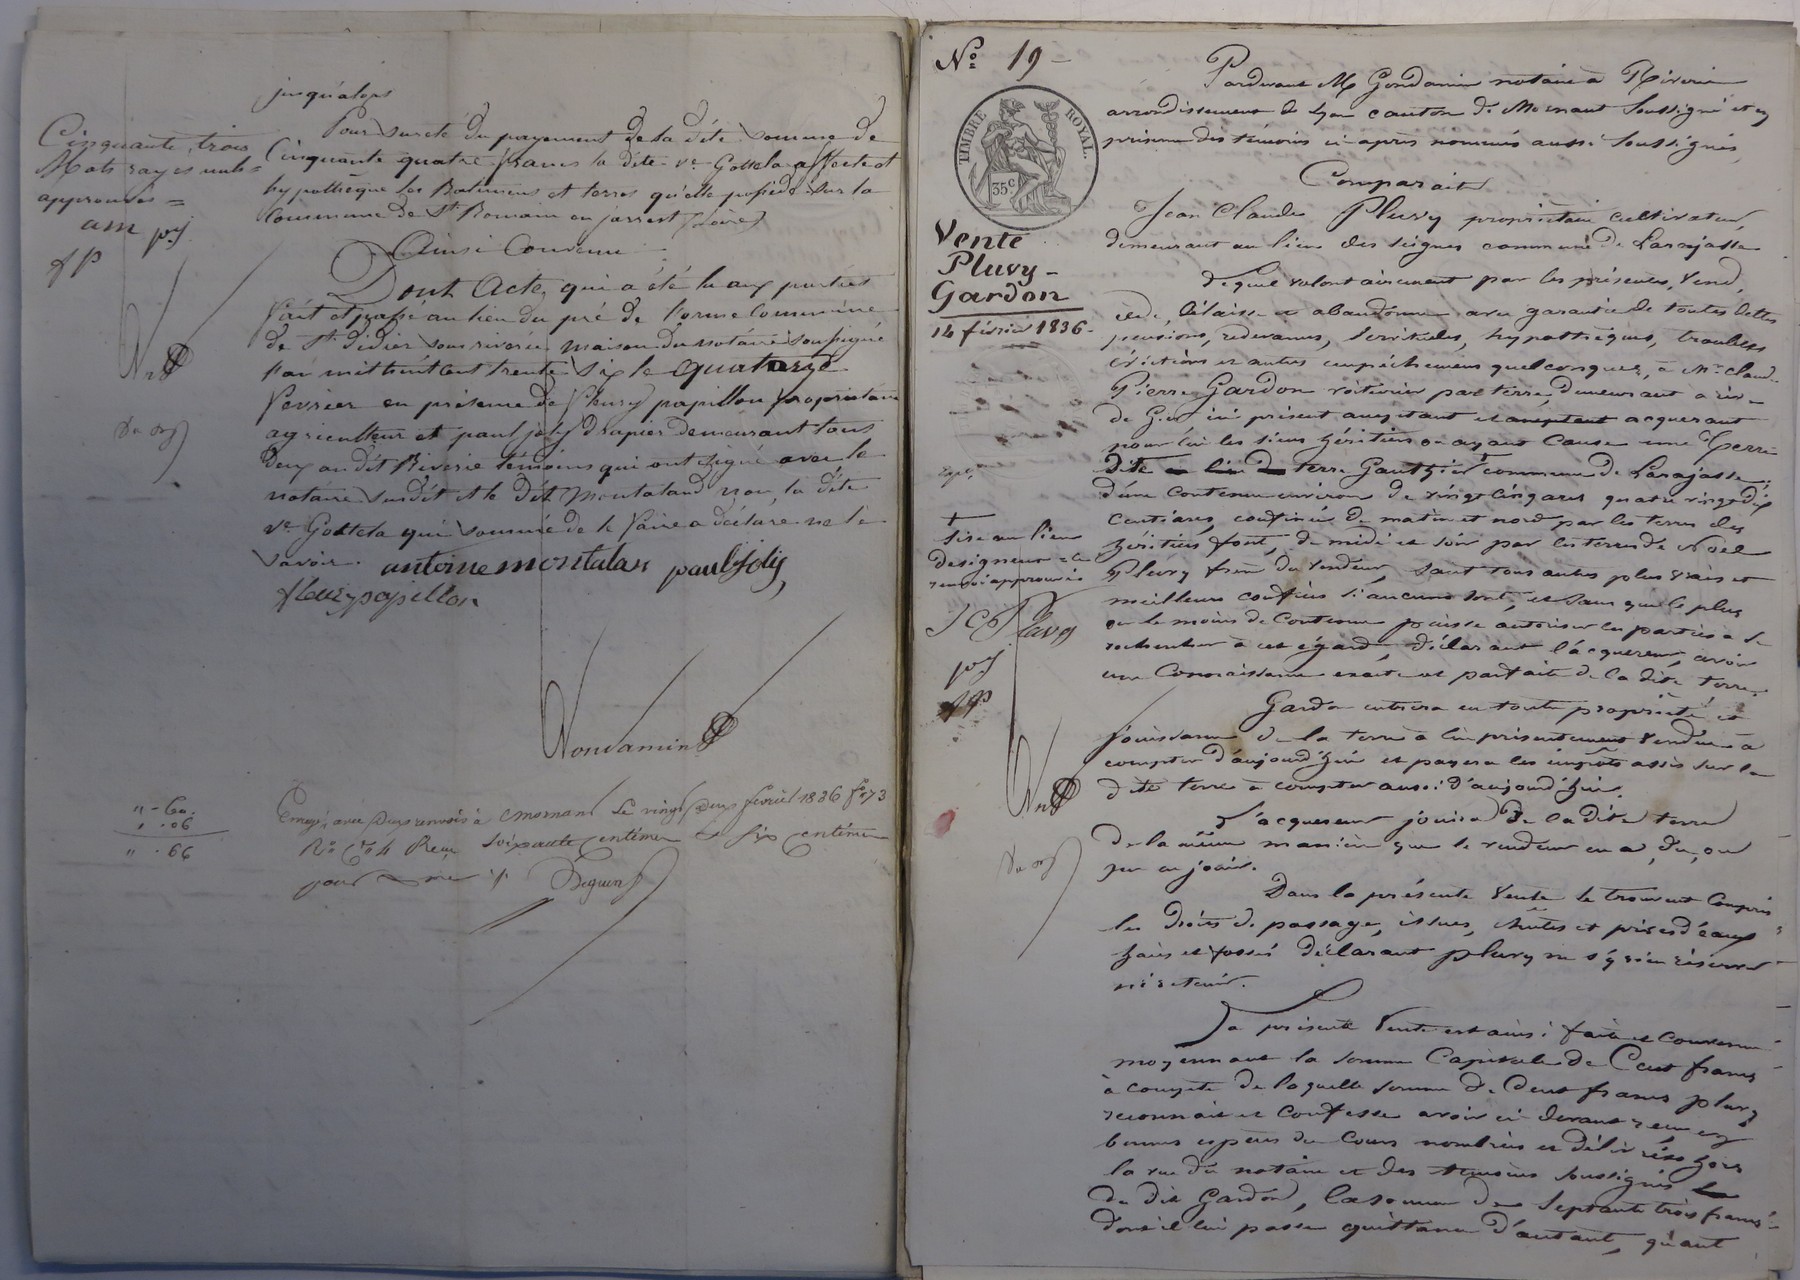 jusqu'alors
Pour sureté du payement de la dite somme de
Cinquante quatre francs la dite ve Gottela affecte et
hypothèque les Batimens et terres qu'elle possède sur la
Commune de St Romain en jarrest (Loire)
Ainsi Convenu
Dont Acte, qui a été lu aux parties
fait et passé au lieu du pré de l'orme Commune
de St didier sous riverie maison du notaire soussigné
l'an mil huit cent trente six le quatorze
fevrier en présence de fleury papillon propriétaire
agriculteur et paul joly drapier demeurant tous
deux au dit Riverie témoins qui ont signé avec le
notaire susdit et le dit Montaland non la dite
ve Gottela qui sommée de le faire a déclaré ne le
savoir.
antoine montalan paul joly
fleury papillon
Gondamin
Cinquante trois
Mots rayés nuls
approuvés =
am pj
fP
" - 60.
" . 06
" . 66
Enregé avec deux renvois à Mornant le vingt deux fevrier 1836 fo 73
Ro Ce 4 Reçu soixante centimes et six centimes
pour
Deguin
No 19
TIMBRE ROYAL.
35c
Vente
Pluvy -
Gardon
14 février 1836 -
Pardevant Me Gondamin notaire à Riverie
arrondissement de Lyon canton de Mornant soussigné et en
présence des témoins ci-après nommés aussi soussignés
Comparait
Jean Claude Pluvy propriétaire cultivateur,
demeurant au lieu des seignes commune de Larajasse
Lequel volontairement par les présentes, vend,
cède, délaisse et abandonne avec garantie de toutes dettes
pensions, redevances, servitudes, hypothèques, troubles
évictions et autres empêchemens quelconques, à Mr Claude
Pierre Gardon voiturier par terre, demeurant à rive
de Gier ici présent acceptant et acquerant
pour lui les siens héritiers ou ayant Cause une Terre
dite terre Gauthier + commune de Larajasse,
d'une Contenue environ de vingt cinq ares quatre vingt dix
centiares, confinée de matin et nord par les terres des
héritiers font, de midi et soir par les terres de Noël
Pluvy frère du vendeur, sauf tous autres plus vrais et
meilleurs confins si aucuns sont, et sans que le plus
ou le moins de Contenue puisse autoriser les parties à se
rechercher à cet égard, déclarant l'acquereur, avoir
une Connaissance exacte et parfaite de la dite terre.
Gardon entrera en toute propriété et
jouissance de la terre à lui présentement Vendue à
compter d'aujourd'hui et payera les impôts assis sur la
dite terre à compter aussi d'aujourd'hui.
L'acquereur jouira de la dite terre
de la même manière que le vendeur en a, du, ou
pu en jouir.
Dans la présente Vente se trouvent Compris
les droits de passage, issues, chutes et prises d'eaux
haies et fossés déclarant pluvy ne s'y rien réserver
ni retenir.
La présente Vente est ainsi faite et Convenue
moyennant la somme Capitale de Cent francs
à compte de laquelle somme de Cent francs pluvy
reconnait et Confesse avoir ci devant reçu en
bonnes espèces du Cours nombrées et délivrées hors
la vue du notaire et des témoins soussignés
du dit Gardon, la somme de Septante trois francs
dont il lui passe quittance d'autant, quant
+
sise au lieu
renvoi approuvé
J C Pluvy
pj
fP